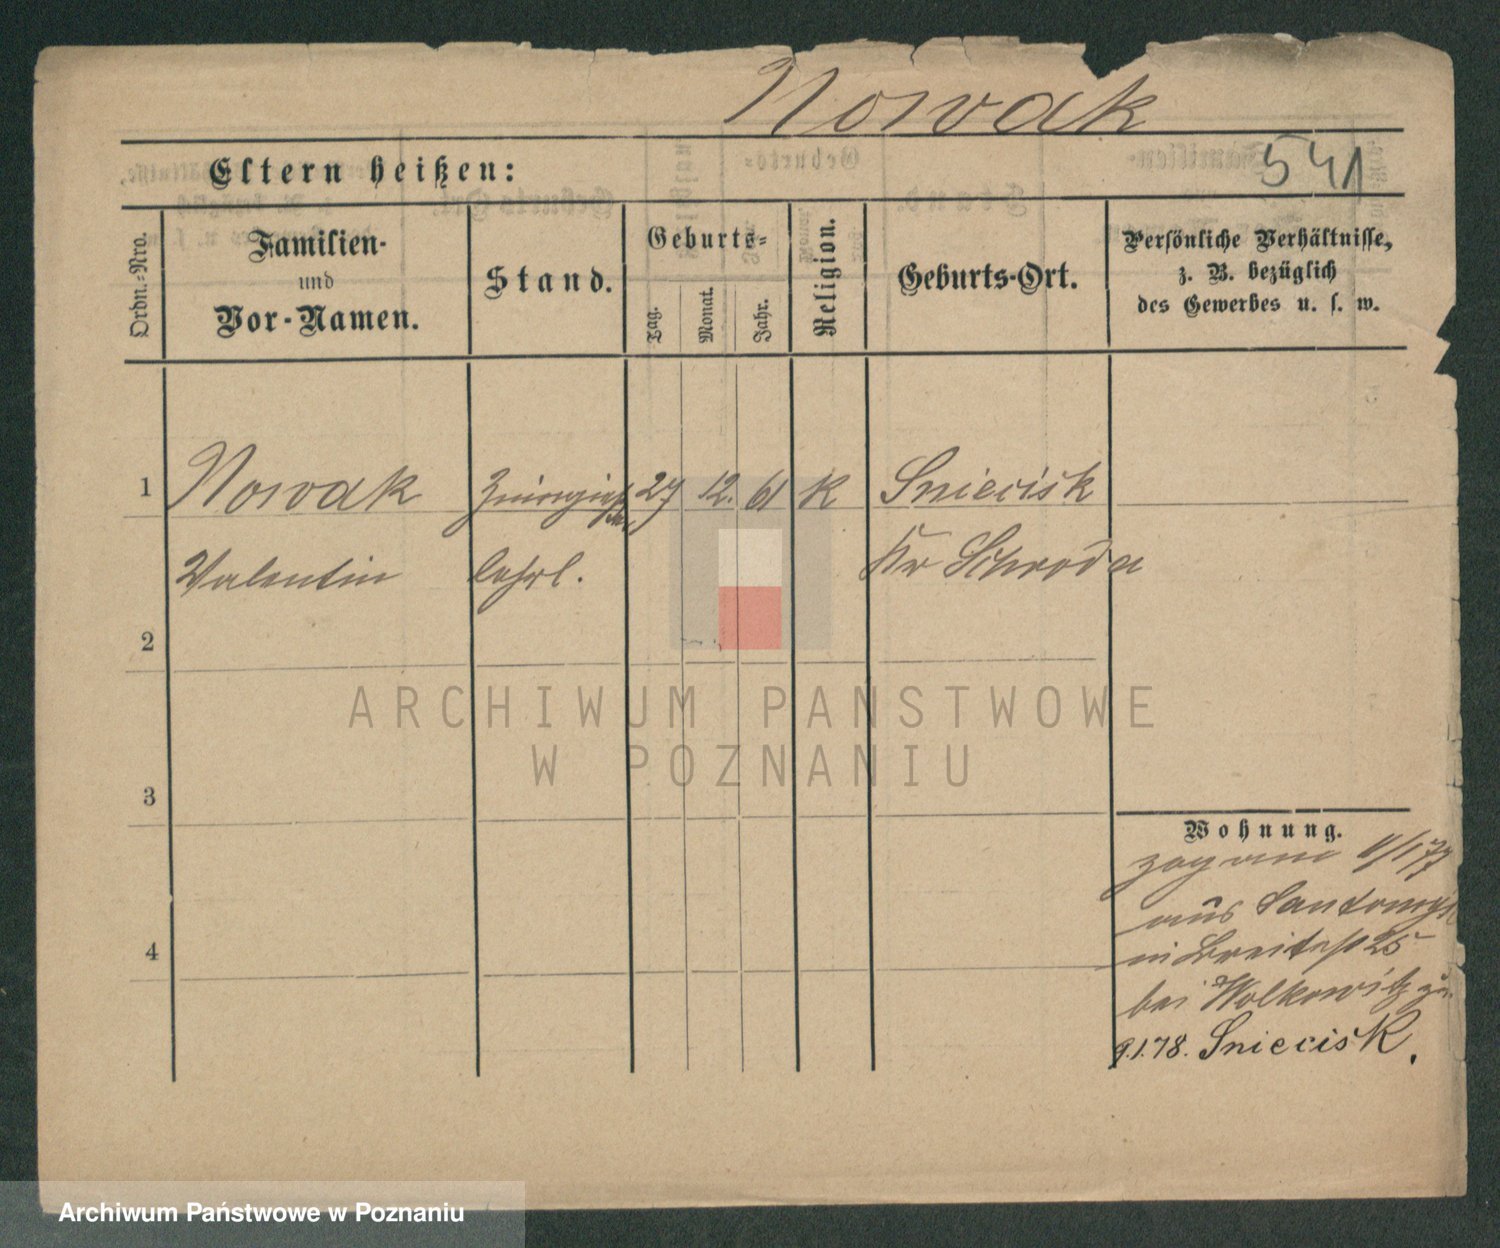 Nowak
541
Eltern heißen:
Ordn.-Nro.
Familien-
und
Vor-Namen.
Stand.
Geburts-
Tag.
Monat.
Jahr.
Religion.
Geburts-Ort.
Persönliche Verhältnisse,
z. B. bezüglich
des Gewerbes u. s. w.
1 Nowak 27 12. 61 K Sniecisk
Valentin lehrl. Kr Schroda
2
3
4
Wohnung.
zog am 1/77
aus Santomysl
in Breitest 25
bei Wolkowitz
9.1.78. Sniecisk.
ARCHIWUM PAŃSTWOWE
W POZNANIU
Archiwum Państwowe w Poznaniu